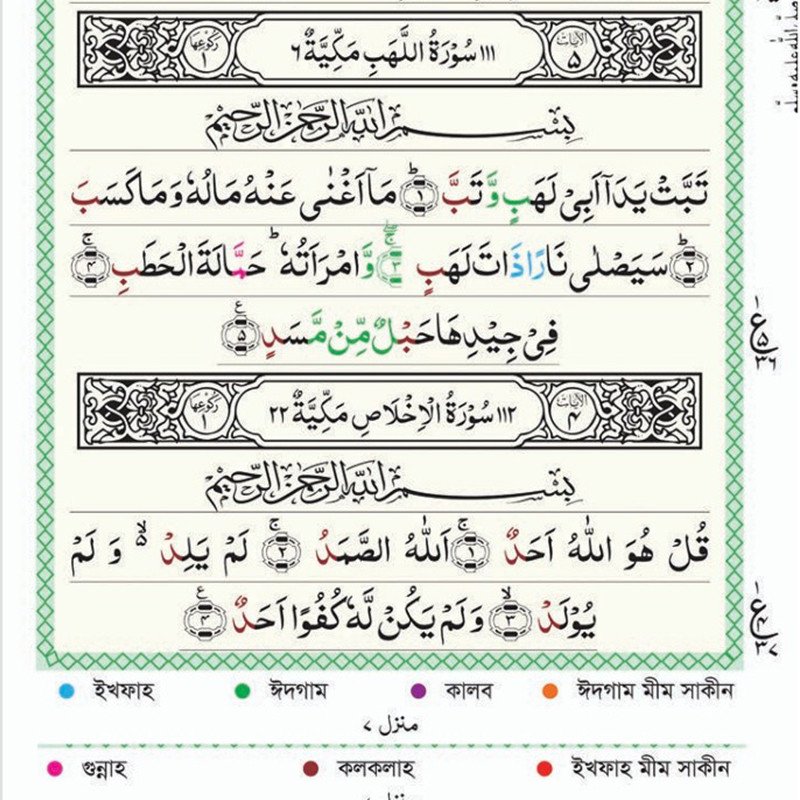 الاٰيات ٥ ١١١ سُوْرَةُ اللَّهَبِ مَكِّيَّةٌ ٦ رُكُوْعُهَا ١
بِسْمِ اللهِ الرَّحْمٰنِ الرَّحِيْمِ
تَبَّتْ يَدَاۤ اَبِيْ لَهَبٍ وَّ تَبَّ ؕ﴿١﴾ مَاۤ اَغْنٰى عَنْهُ مَالُهٗ وَ مَا كَسَبَ
ؕ﴿٢﴾ سَيَصْلٰى نَارًا ذَاتَ لَهَبٍ ۚۖ﴿٣﴾ وَّ امْرَاَتُهٗ ؕ حَمَّالَةَ الْحَطَبِ ۚ﴿٤﴾
فِيْ جِيْدِهَا حَبْلٌ مِّنْ مَّسَدٍ ﴿٥﴾ ع
١ ع ٥ ٣٦
الاٰيات ٤ ١١٢ سُوْرَةُ الْاِخْلَاصِ مَكِّيَّةٌ ٢٢ رُكُوْعُهَا ١
بِسْمِ اللهِ الرَّحْمٰنِ الرَّحِيْمِ
قُلْ هُوَ اللّٰهُ اَحَدٌ ۚ﴿١﴾ اَللّٰهُ الصَّمَدُ ۚ﴿٢﴾ لَمْ يَلِدْ ۙ۬ وَ لَمْ
يُوْلَدْ ۙ﴿٣﴾ وَ لَمْ يَكُنْ لَّهٗ كُفُوًا اَحَدٌ ﴿٤﴾ ع
١ ع ٤ ٣٧
ইখফাহ ঈদগাম কালব ঈদগাম মীম সাকীন
منزل ٧
গুন্নাহ কলকলাহ ইখফাহ মীম সাকীন